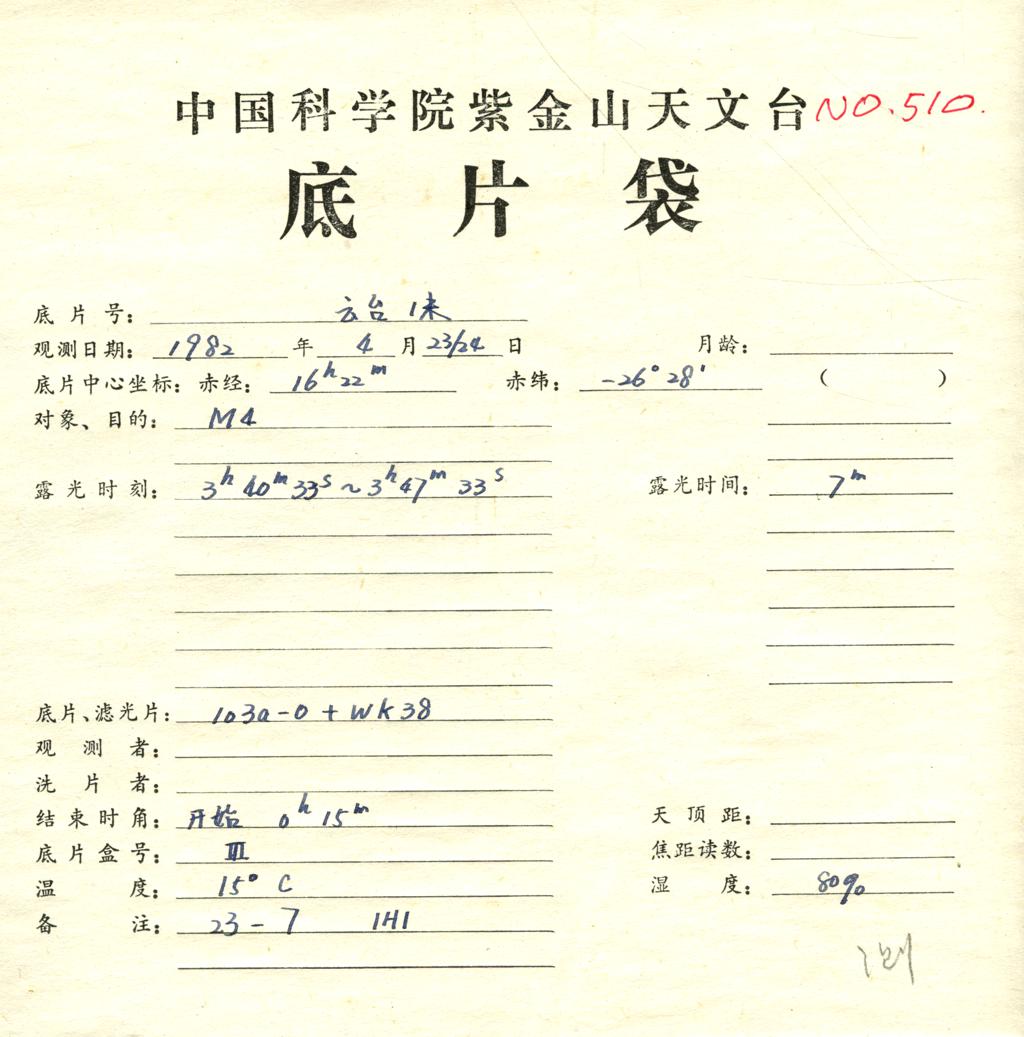 中国科学院紫金山天文台 NO.510.
底片袋
底片号: 云台 1米
观测日期: 1982 年 4 月 23/24 日 月龄:
底片中心坐标: 赤经: 16ʰ22ᵐ 赤纬: -26°28′ ( )
对象、目的: M4
露光时刻: 3ʰ40ᵐ33ˢ~3ʰ47ᵐ33ˢ 露光时间: 7ᵐ
底片、滤光片: 103a-O + WK38
观测者:
洗片者:
结束时角: 开始 0ʰ15ᵐ 天顶距:
底片盒号: III 焦距读数:
温度: 15°C 湿度: 80%
备注: 23-7 1H1